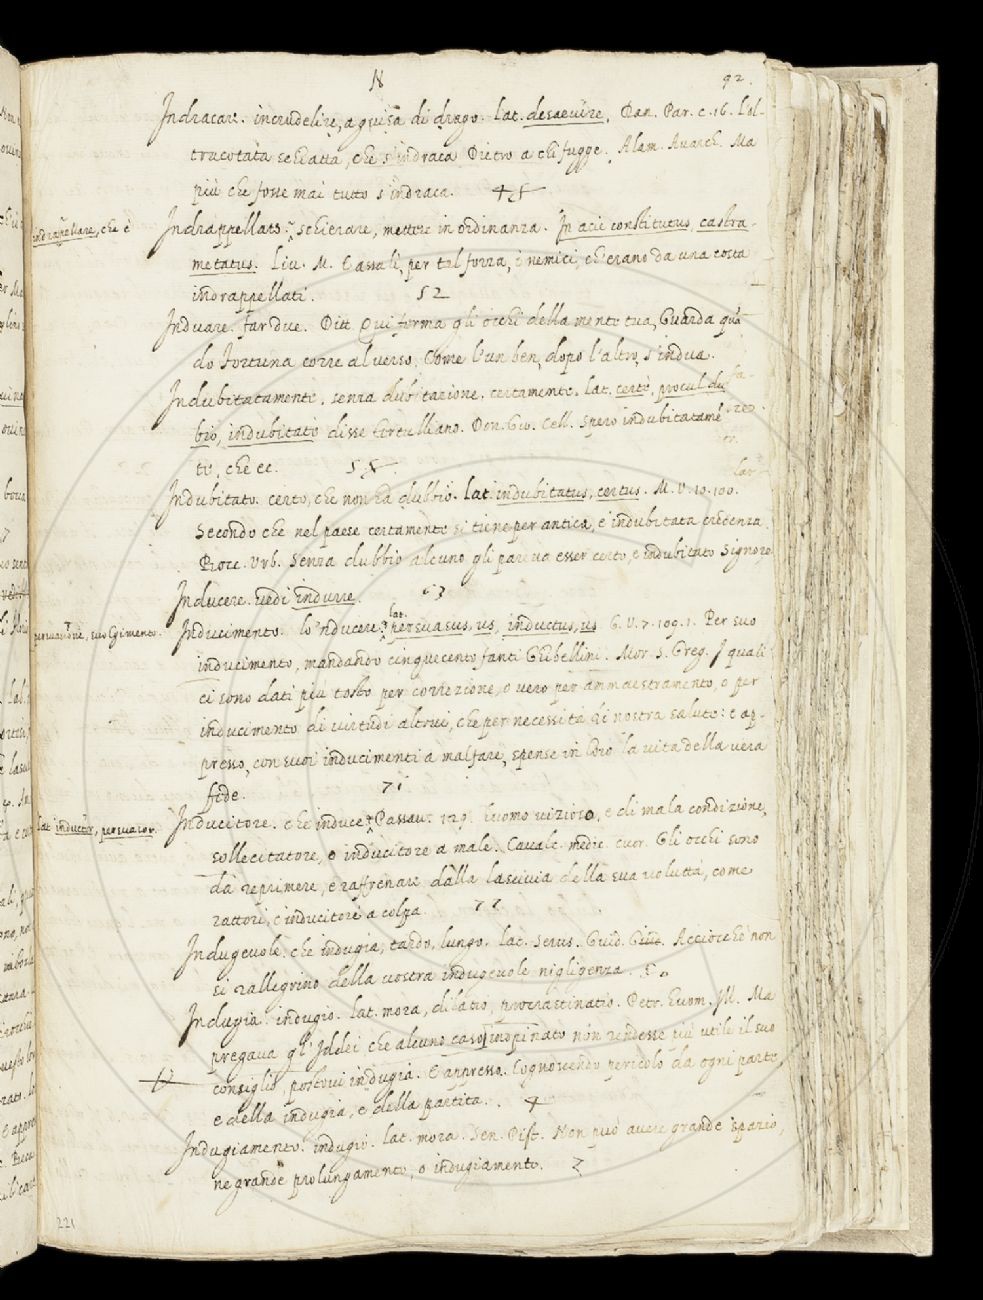 N
92.
Indracare. incrudelire, a guisa di drago. lat. desaeuire, Dan. Par. c. 16. L'ol-
tracotata schiatta, che s'indraca Dietro a chi fugge. Alam. Auarch. Ma
più che fosse mai tutto s'indraca.
indrappellare, che è
Indrappellato. schierare, mettere in ordinanza. In acie constitutus, castra-
metatus. Liu. M. Cassali, per tal forza, i nemici, ch'erano da una costa
indrappellati. 52
Induare. far due. Ditt. Qui forma gli occhi della mente tua, Guarda quā
do Fortuna corre al verso, Come l'un ben, dopo l'altro, s'indua.
Indubitatamente. senza dubitazione, certamente. lat. certè, procul du-
bio, indubitatò disse Tertulliano. Don. Gio. Cell. Spero indubitatamē
te, che ec.
Indubitato. certo, che non ha dubbio. lat. indubitatus, certus. M. V. 10. 100.
Secondo che nel paese certamente si tiene per antica, e indubitata credenza.
Proc. Urb. Senza dubbio alcuno gli pareua esser certo, e indubitato Signore
Inducere. vedi indurre. 63
persuasione, suolgimento.
Inducimento. lo 'nducere. lat. persuasus, us, inductus, us G. V. 7. 109. 1. Per suo
inducimento, mandando cinquecento fanti Ghibellini. Mor. S. Greg. I quali
ci sono dati più tosto per correzione, o vero per ammaestramento, o per
inducimento di virtudi altrui, che per necessità di nostra salute: e ap-
presso, con suoi inducimenti a malfare, spense in loro la vita della vera
fede. 71
lat. inductor, persuasor.
Inducitore. che induce. Passau. 129. Huomo vizioso, e di mala condizione,
sollecitatore, o inducitore a male. Caualc. medic. cuor. Gli occhi sono
da reprimere, e raffrenare dalla lasciuia della sua voluttà, come
rattori, e inducitori a colpa. 77
Indugeuole. che indugia, tardo, lungo. lat. serus. Guid. Giud. Acciocchè non
si rallegrino della vostra indugeuole nigligenza.
Indugia. indugio. lat. mora, dilatio, procrastinatio. Petr. huom. ill. Ma
pregaua gl'Iddei che alcuno caso inopinato non rendesse più utile il suo
consiglio, postoui indugia. E appresso. Cognouendo pericolo da ogni parte
e della indugia, e della partita. 4
Indugiamento. indugio. lat. mora. Sen. Pist. Non può auere grande spazio,
ne grande prolungamento, o indugiamento. 3
221